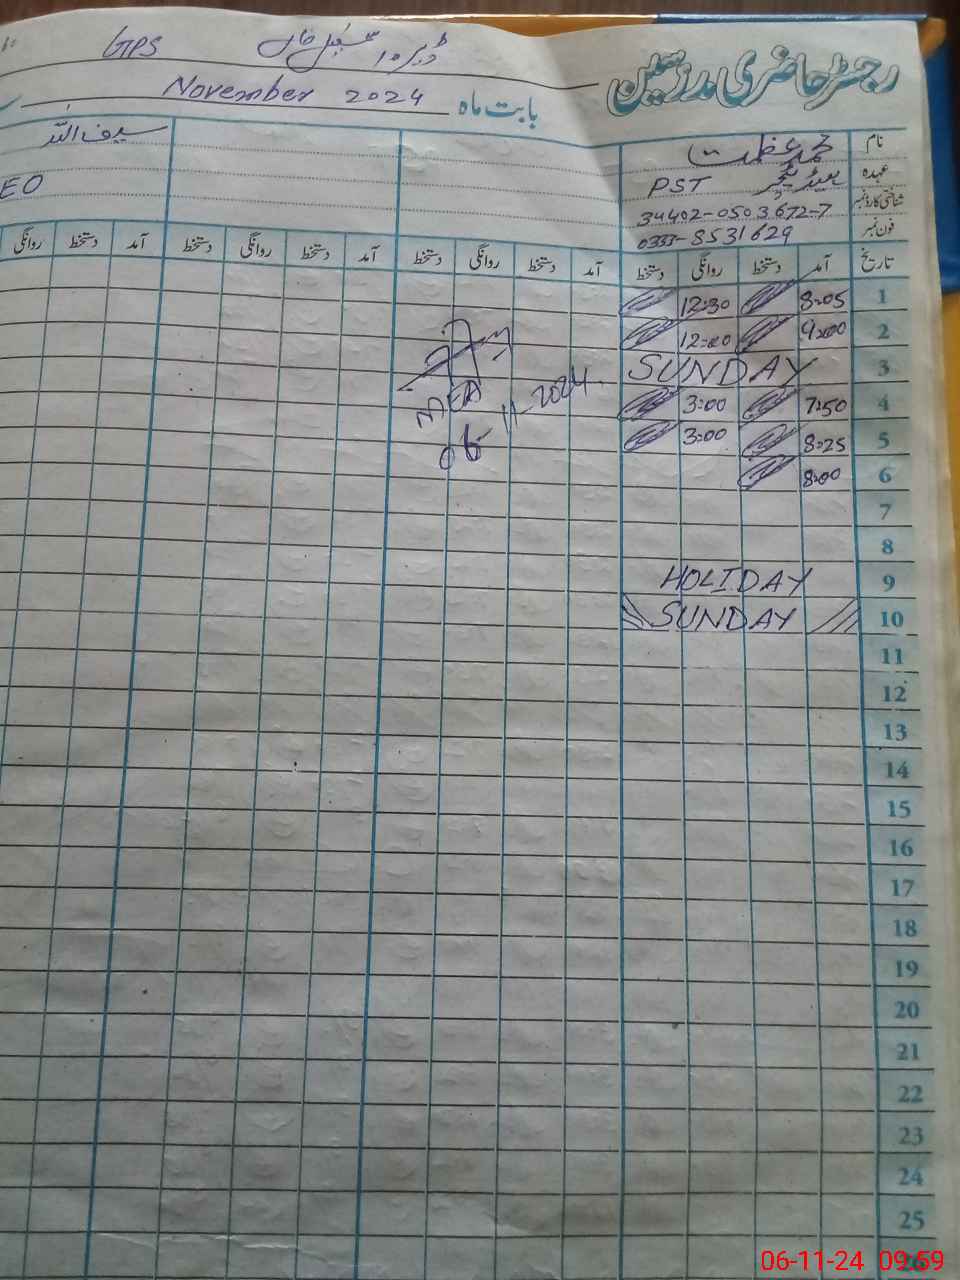 رجسٹر حاضری مدرسین
GPS
بابت ماہ November 2024
نام
محمد عظمت
سیف اللہ
عہدہ
ہیڈ ٹیچر PST
EO
شناختی کارڈ نمبر
34402-0503672-7
فون نمبر
0333-8531629
تاریخ آمد دستخط روانگی دستخط آمد دستخط روانگی دستخط آمد دستخط روانگی دستخط آمد دستخط روانگی
1 8:05 12:30
2 9:00 12:00
3 SUNDAY
4 7:50 3:00
5 8:25 3:00
6 8:00
MEA
06-11-2024
7
8
9 HOLIDAY
10 SUNDAY
11
12
13
14
15
16
17
18
19
20
21
22
23
24
25
26
06-11-24 09:59